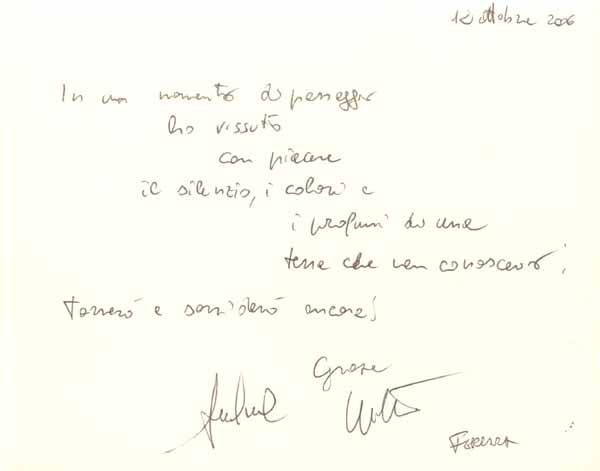 12 ottobre 2006
In un momento di passaggio
ho vissuto
con piacere
il silenzio, i colori e
i profumi di una
terra che non conoscevo!
Tornerò e sorriderò ancora!
Grazie